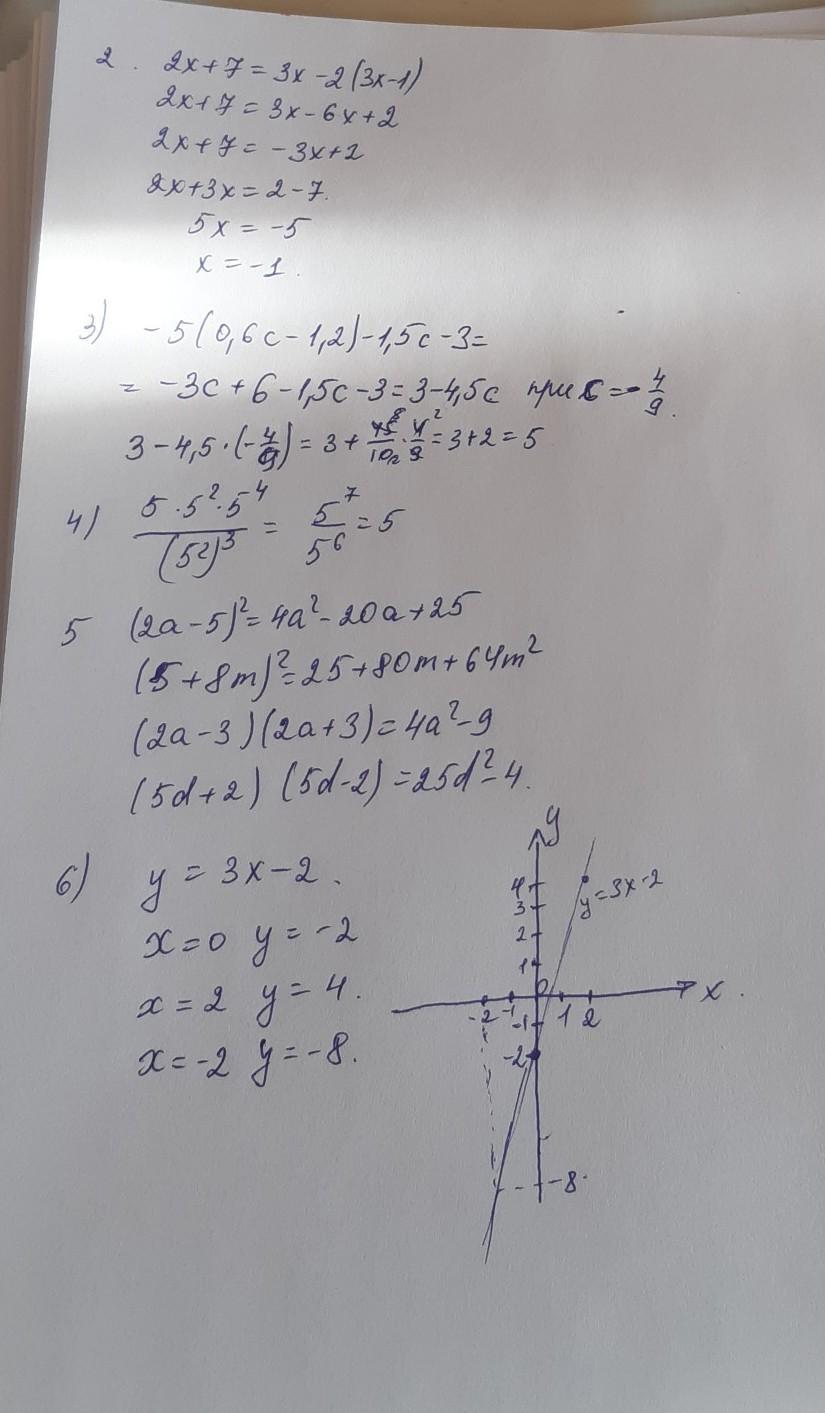 2. 2x+7=3x-2(3x-1)
2x+7=3x-6x+2
2x+7=-3x+2
2x+3x=2-7.
5x=-5
x=-1.
3) -5(0,6c-1,2)-1,5c-3=
= -3c+6-1,5c-3=3-4,5c при c=-4/9.
3-4,5·(-4/9)=3+45/10·4/9=3+2=5
4) 5·5²·5⁴/(5²)³ = 5⁷/5⁶=5
5 (2a-5)²=4a²-20a+25
(5+8m)²=25+80m+64m²
(2a-3)(2a+3)=4a²-9
(5d+2) (5d-2)=25d²-4.
6) y=3x-2.
x=0 y=-2
x=2 y=4.
x=-2 y=-8.
y
4
y=3x-2
3
2
1
0
x.
-2 -1 1 2
-1
-2
-8.